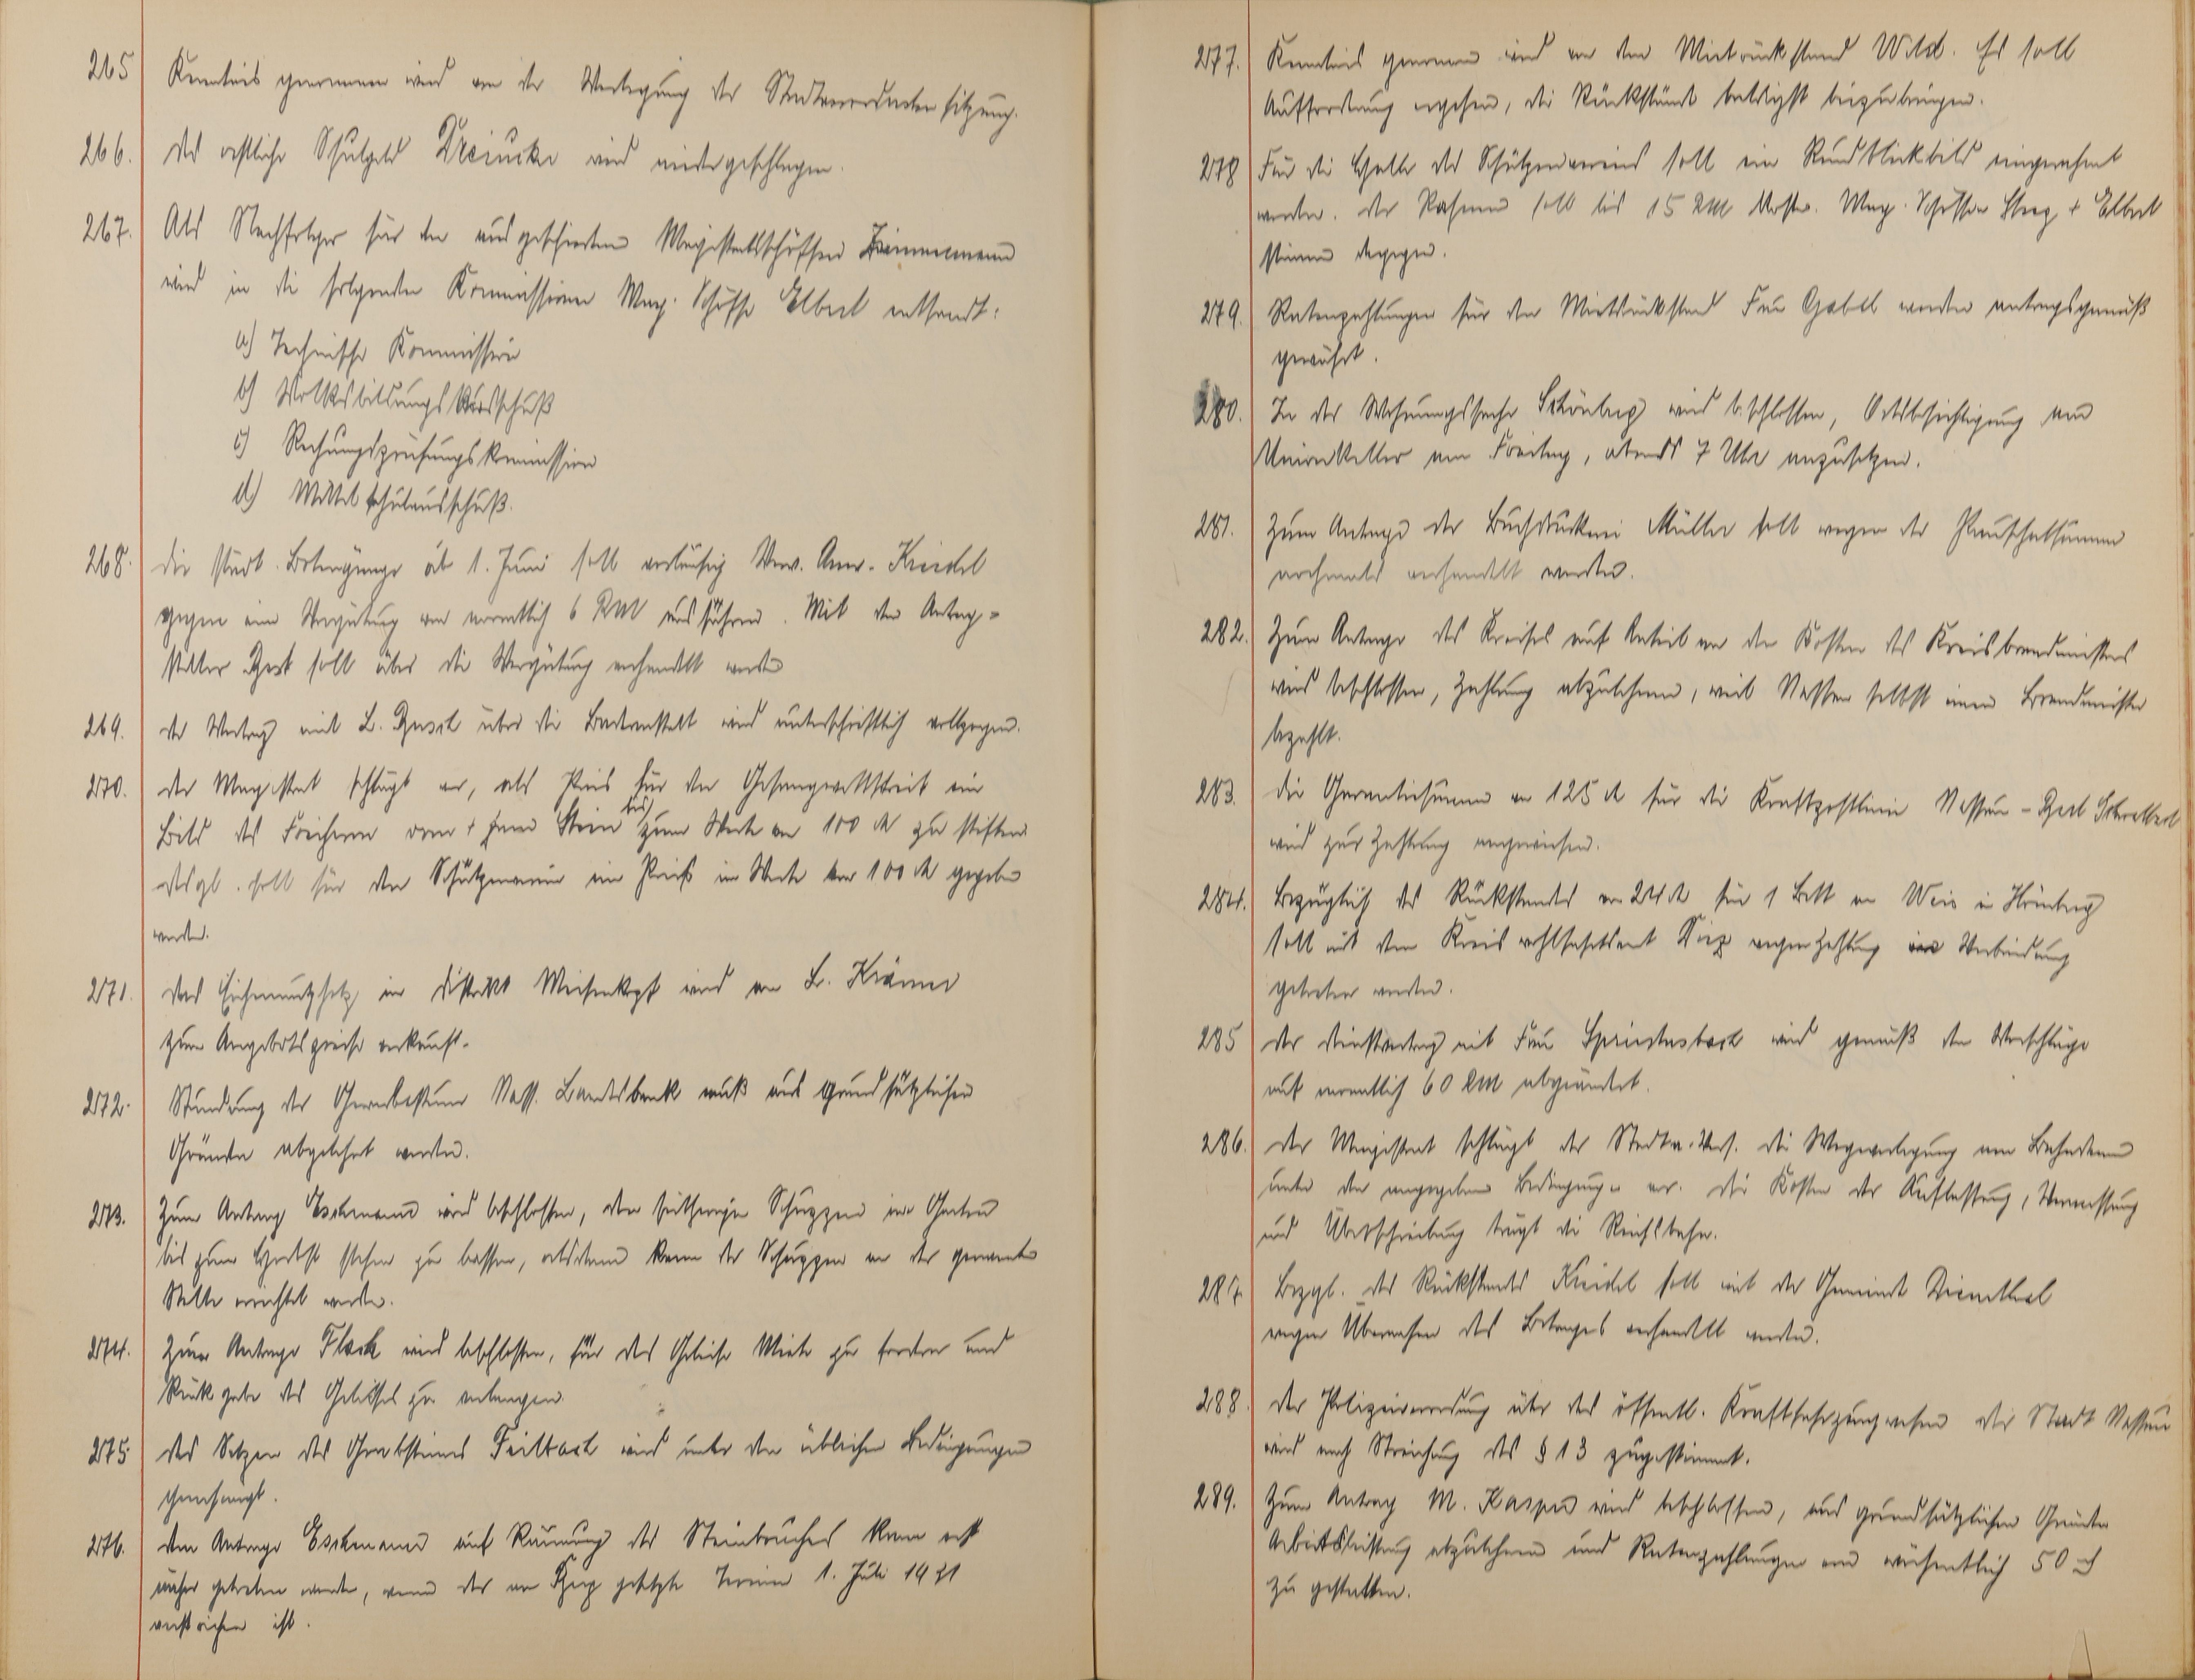 265 Kenntnis genommen wird von der Verlegung der Stadtverordnetensitzung.
266. Das restliche Schulgeld wird niedergeschlagen.
267. Als Nachfolger für den ausgeschiedenen Magistratsschöffen Zimmermann
wird in die folgenden Kommissionen Mag. Schöffe Elbert entsandt:
a) Technische Kommission
b) Volksbildungsausschuß
c) Rechnungsprüfungskommission
d) Mittelschulausschuß.
268. Die städt. Botengänge ab 1. Juni soll vorläufig Verw. Anw. Kreidel
gegen eine Vergütung von monatlich 6 RM ausführen. Mit dem Antrag-
steller soll über die Vergütung verhandelt werden
269. Der Vertrag mit L. Busch über die Badeanstalt wird unterschriftlich vollzogen.
270. Der Magistrat schlägt vor, als Preis für den Gesangwettstreit ein
Bild des Freiherrn vom + zum Stein bis zum Werte von 100 M zu stiften
desgl. soll für den Schützenverein ein Preis im Werte von 100 M gegeben
werden.
271. Das Eichennutzholz im Distrikt Weisenkopf wird an L. Krämer
zum Angebotspreise verkauft.
272. Stundung der Gewerbesteuer Nass. Landesbank muß aus grundsätzlichen
Gründen abgelehnt werden.
273. Zum Antrag Eschmann wird beschlossen, den seitherigen Schuppen im Garten
bis zum Herbst stehen zu lassen, alsdann kann der Schuppen an der genannten
Stelle errichtet werden.
274. Zum Antrage Flock wird beschlossen, für das Geleise Miete zu fordern und
Rückgabe des Geleises zu verlangen.
275 Das Setzen des Grabsteines Feilbach wird unter den üblichen Bedingungen
genehmigt.
276. Dem Antrage Eschmann auf Räumung des Steinbruches kann erst
näher getreten werden, wenn der von gesetzte Termin 1. Juli 1931
verstrichen ist.
277. Kenntnis genommen wird von dem Mietrückstand Wild. Es soll
Aufforderung ergehen, die Rückstände baldigst beizubringen.
278 Für die Halle des Schützenvereins soll ein Rundblickbild eingerahmt
werden. Der Rahmen soll bis 15 RM kosten. Mag. Schöffen + Elbert
stimmen dagegen.
279. Ratenzahlungen für den Mietrückstand Frau Gabel werden antragsgemäß
gewährt.
280. In der Wohnungssache Schönberg wird beschlossen, Ortsbesichtigung am
Unionkeller am Freitag, abends 7 Uhr anzusetzen.
281. Zum Antrage der Buchdruckerei Müller soll wegen der Pauschalsumme
nochmals verhandelt werden.
282. Zum Antrage des Kreises auf Anteil an den Kosten des Kreisbrandmeisters
wird beschlossen, Zahlung abzulehnen, weil Nassau selbst einen Brandmeister
bezahlt.
283. Die Garantiesumme von 125 M für die Kraftpostlinie Nassau - Bad Schwalbach
wird zur Zahlung angewiesen.
284. Bezüglich des Rückstandes von 24 M für 1 Bett an Weis in Hömberg
soll mit dem Kreiswohlfahrtsamt Diez wegen Zahlung in Verbindung
getreten werden.
285 Der Dienstvertrag mit Frau Spriestersbach wird gemäß dem Vorschlage
auf monatlich 60 RM abgeändert.
286. Der Magistrat schlägt der Stadtv. Vers. die Wegeverlegung am Bahndamm
unter den angegebenen Bedingungen vor. Die Kosten der Auflassung, Vermessung
und Überschreibung trägt die Reichsbahn.
287. Bezgl. des Rückstandes Kreidel soll mit der Gemeinde Dienethal
wegen Übernahme des Betrages verhandelt werden.
288. Der Polizeiverordnung über das öffentl. Kraftfahrzeugwesen der Stadt Nassau
wird nach Streichung des § 13 zugestimmt.
289. Zum Antrag M. Kaspers wird beschlossen, aus grundsätzlichen Gründen
Arbeitsleistung abzulehnen und Ratenzahlungen von wöchentlich 50
zu gestatten.